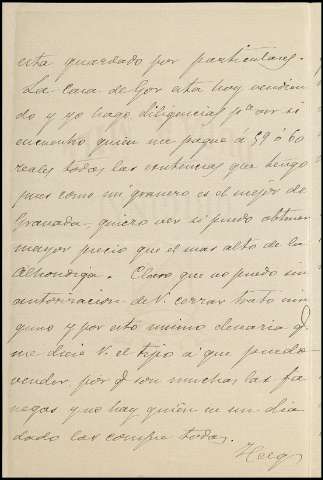 esta guardado por particulares.
La casa de Gor esta hoy vendien
do y yo hago diligencias pª ver si
encuentro quien me pague á 59 ó 60
reales todas las existencias que tengo
pues como mi granero es el mejor de
Granada, quiero ver si puedo obtener
mayor precio que el mas alto de la
Alhondiga. Claro que no puedo sin
autorizacion de V. cerrar trato nin
guno y por esto mismo desearia q.
me dicie V. el tipo á que puedo
vender, por q. son muchas las fa
negas y no hay quien en un dia
dado las compre todas.